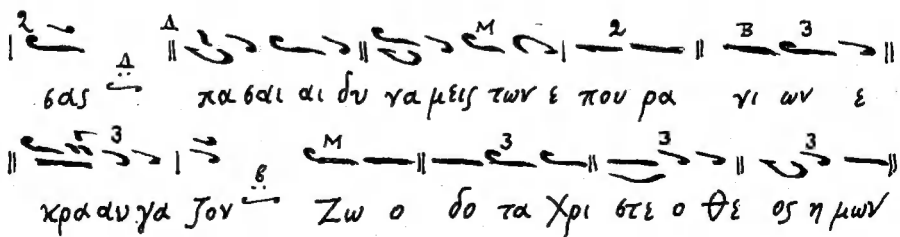 σας πα σαι αι δυ να μεις των ε που ρα νι ων ε
κρα αυ γα ζον Ζω ο δο τα Χρι στε ο Θε ος η μων